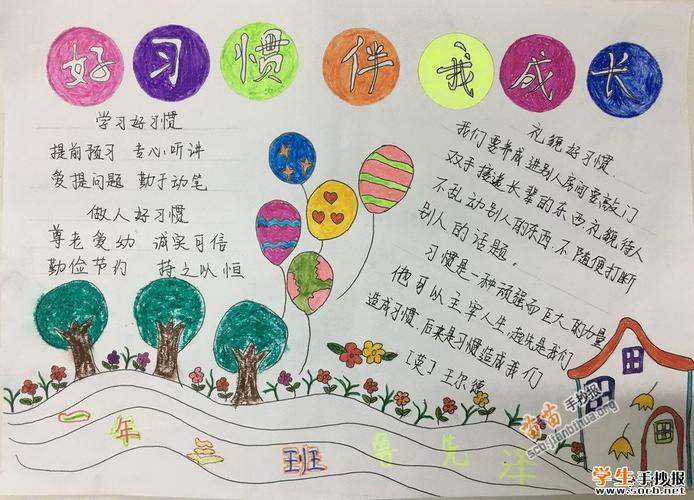 好习惯伴我成长
学习好习惯
提前预习 专心听讲
爱提问题 勤于动笔
做人好习惯
尊老爱幼 诚实可信
勤俭节约 持之以恒
礼貌好习惯
我们要养成进别人房间要敲门
双手接递长辈的东西.礼貌待人
不乱动别人的东西.不随便打断
别人的话题.
习惯是一种顽强而巨大的力量
他可以主宰人生,起先是我们
造成习惯.后来是习惯造成我们
[英]王尔德
一年三班 鲁先泽
苗苗手抄报
scb.jianbihua.org
学生手抄报
www.socb.net